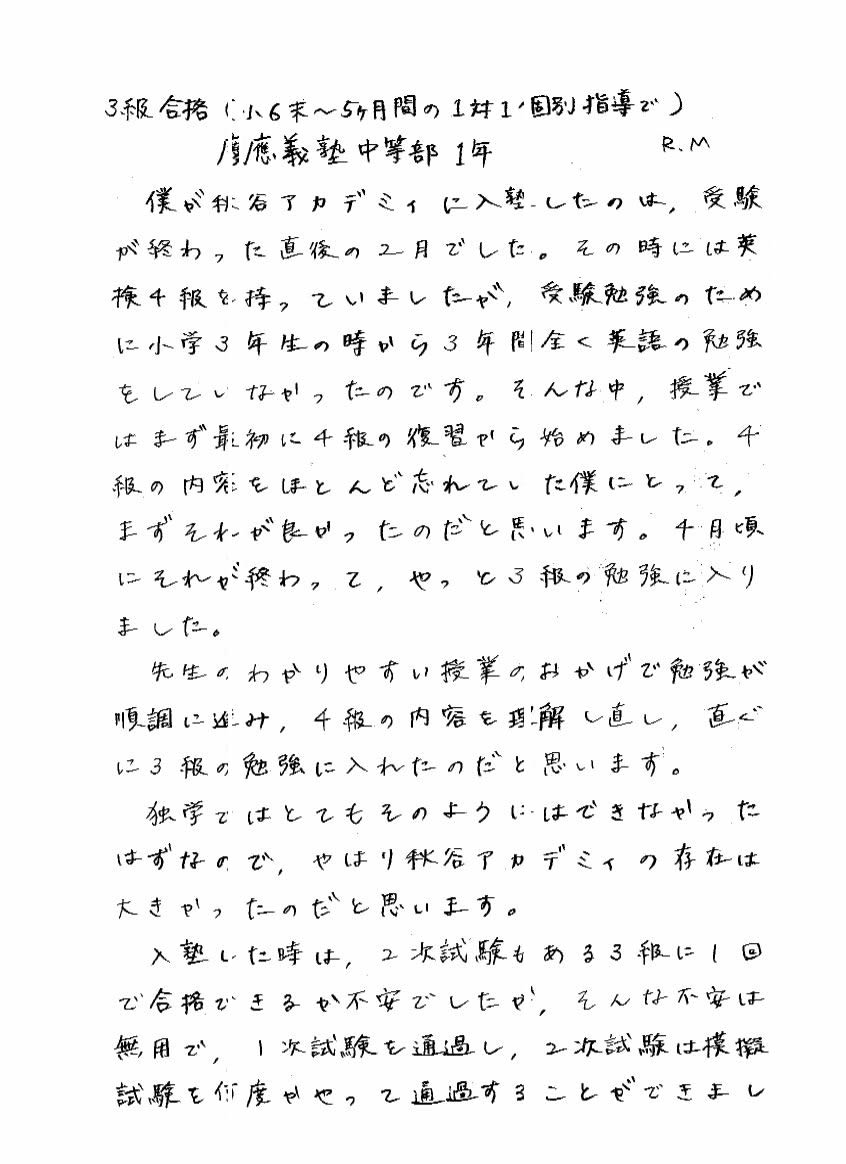 3級合格(小6末〜5ヶ月間の1対1個別指導で)
慶應義塾中等部1年 R.M
僕が秋谷アカデミィに入塾したのは,受験
が終わった直後の2月でした。その時には英
検4級を持っていましたが,受験勉強のため
に小学3年生の時から3年間全く英語の勉強
をしていなかったのです。そんな中,授業で
はまず最初に4級の復習から始めました。4
級の内容をほとんど忘れていた僕にとって,
まずそれが良かったのだと思います。4月頃
にそれが終わって,やっと3級の勉強に入り
ました。
先生のわかりやすい授業のおかげで勉強が
順調に進み,4級の内容を理解し直し,直ぐ
に3級の勉強に入れたのだと思います。
独学ではとてもそのようにはできなかった
はずなので,やはり秋谷アカデミィの存在は
大きかったのだと思います。
入塾した時は,2次試験もある3級に1回
で合格できるか不安でしたが,そんな不安は
無用で,1次試験を通過し,2次試験は模擬
試験を何度かやって通過することができまし